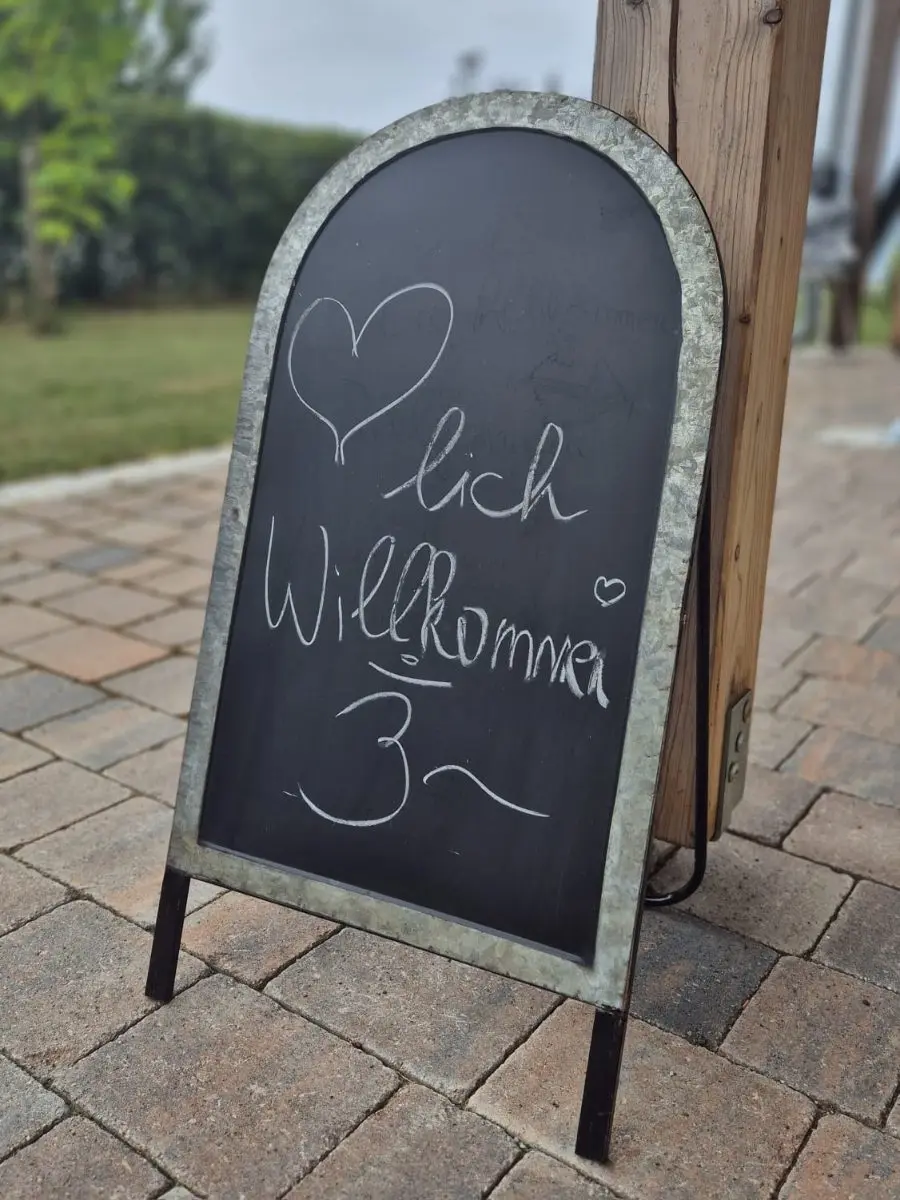 ♥lich
Willkommen